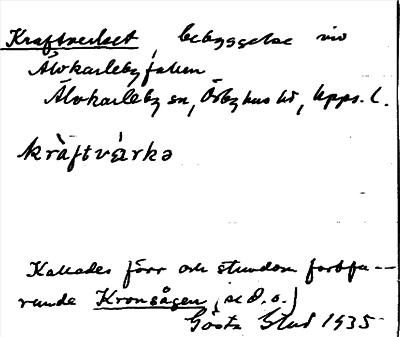 Kraftverket, bebyggelse vid
Älvkarlebyfallen
Älvkarleby sn, Örbyhus hd, Upps. l.
kràftvárkə
Kallades förr och stundom fortfa-
rande Kronsågen (se d. o.)
Gösta Stud 1935